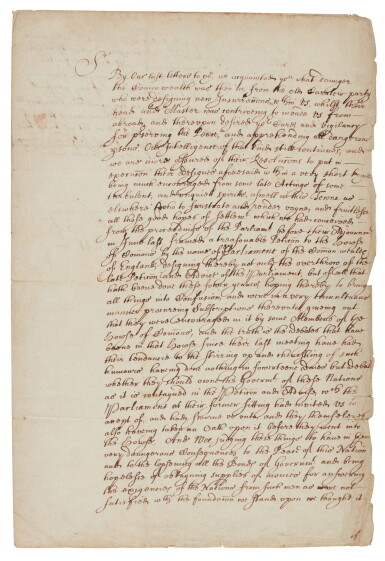 Sr
By our last letters to yo. we acquainted you what danger
the Comonwealth was then in from the old Cavalier party
who were designing new Insurrections wthin us, whilst their
head and Master was contriving to invade us from
abroad, and thereupon desired yor Care and vigilancy
for preserving the Peace, and apprehending all dangerous
psons. Our Intelligence of that kind still continues, and
we are more assured of their Resolutions to put in
execution their designes aforesaid wthin a very short tyme
being much encouraged from some late Actings of some
turbulent and unquiet spirits, aswell in this Towne as
elsewhere, who to frustrate and render vayne and fruitlesse
all those good hopes of Settlemt which we had conceived
from the proceedings of the Parliamt before their Adjournmt
in June last, framed a treasonable Petition to the House
of Comons by the name of Parliament of the Comon wealth
of England, designing thereby not only the overthrow of the
last Petition and Advice of the Parliament but of all that
hath been done these seven years, hoping thereby to bring
all things into Confusion, and were in a very tumultuous
manner procuring Subscriptions thereunto, giveing out
that they were encouraged in it by some Members of ye
House of Comons, and the truth is the debates that have
beene in that House since their last meeting have had
their tendency to the stirring up and cherishing of such
humours having done nothing in fourteene dayes but debate
whether they should owne the Governmt of these Nations
as it is contayned in the Petition and Advise, wch the
Parliament at their former sitting had invited us to
accept of, and had sworne us unto, and they themselves
also having taken an Oath upon it before they went into
the House. And Wee judging these things to have in them
very dangerous Consequences to the Peace of this Nation
and to the loosening all the Bonds of Governmt, and being
hopelesse of obtayning supplies of monies for answering
the exigencies of the Nations from such men as are not
satisfied with the foundation we stand upon we thought it
of